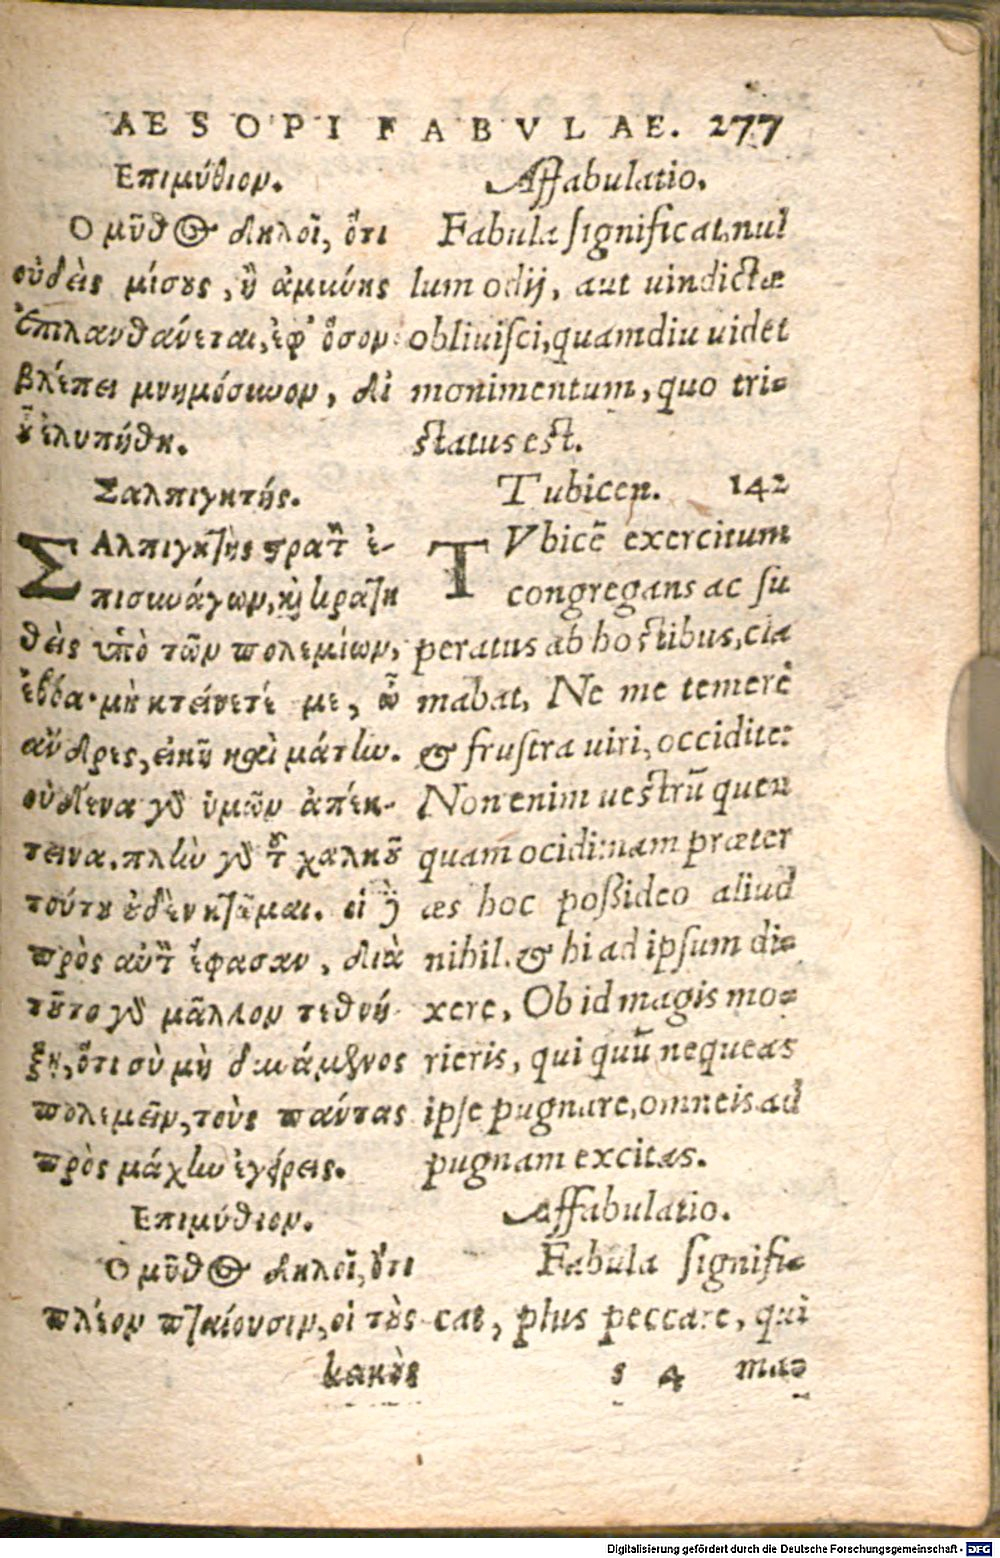 AESOPI FABVLAE. 277
Επιμύθιον.
Ο μῦθος δηλοῖ, ὅτι
οὐδεὶς μίσους, ἢ ἀμύνης
ἐπιλανθάνεται, ἐφ' ὅσον
βλέπει μνημόσυνον, δι
οὗ ἐλυπήθη.
Σαλπιγκτής.
ΣΑλπιγκτὴς στρατὸν ἐ-
πισυνάγων, καὶ κρατη
θεὶς ὑπὸ τῶν πολεμίων,
ἐβόα· μὴ κτείνετέ με, ὦ
ἄνδρες, εἰκῆ καὶ μάτην.
οὐδένα γὰρ ὑμῶν ἀπέκ-
τεινα. πλὴν γὰρ τοῦ χαλκοῦ
τούτου οὐδὲν κτῶμαι. οἱ δὲ
πρὸς αὐτὸν ἔφασαν, διὰ
τοῦτο γὰρ μᾶλλον τεθνή-
ξῃ, ὅτι σὺ μὴ δυνάμενος
πολεμεῖν, τοὺς πάντας
πρὸς μάχην ἐγείρεις.
Επιμύθιον.
Ο μῦθος δηλοῖ, ὅτι
πλέον πταίουσιν, οἱ τοὺς
κακοὺς
Affabulatio.
Fabula significat, nul
lum odij, aut uindictæ
obliuisci, quamdiu uidet
monimentum, quo tri-
status est.
Tubicen. 142
TVbicẽ exercitum
congregans ac su
peratus ab hostibus, cla
mabat, Ne me temerè
& frustra uiri, occidite:
Non enim uestrũ quen
quam ocidi: nam præter
æs hoc possideo aliud
nihil. & hi ad ipsum di-
xere, Ob id magis mo-
rieris, qui quũ nequeas
ipse pugnare, omneis ad
pugnam excitas.
Affabulatio.
Fabula signifi-
cat, plus peccare, qui
s 4 ma-
Digitalisierung gefördert durch die Deutsche Forschungsgemeinschaft - DFG